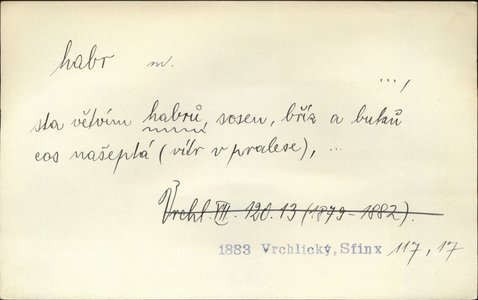 habr m.
...,
sta větvím habrů, sosen, bříz a buků
cos našeptá (vítr v pralese), ...
Vrchl. VII. 120.13 (1879-1882).
1883 Vrchlický, Sfinx 117, 17